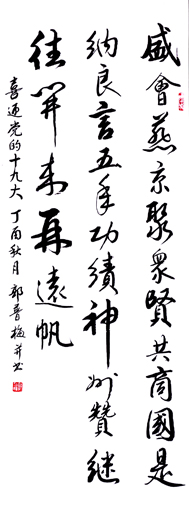 盛會燕京聚衆賢共商國是
納良言五年功績神州贊継
往開来再遠帆
喜迎党的十九大丁酉秋月郭喜梅并书